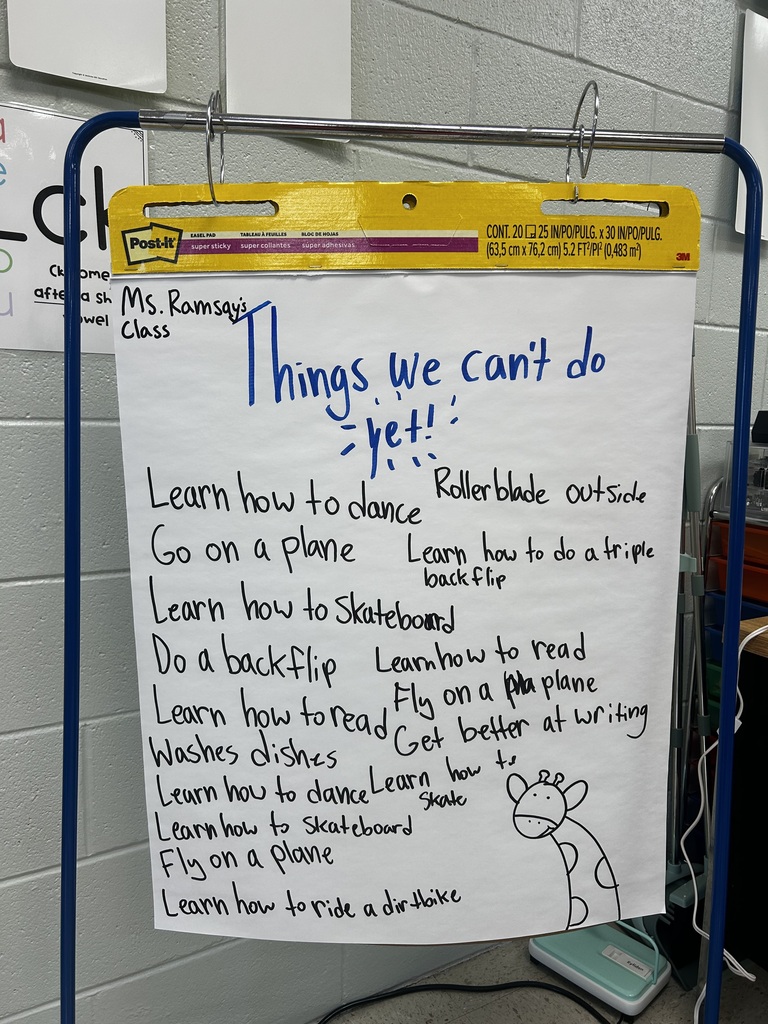 ck
Ck ome
after a sh
vowel
Post-it
EASEL PAD
super sticky
TABLEAU À FEUILLES
super collantes
BLOC DE HOJAS
super adhesivas
CONT. 20 25 IN/PO/PULG. x 30 IN/PO/PULG.
(63,5 cm x 76,2 cm) 5.2 FT²/PI² (0,483 m²)
3M
Ms. Ramsay's
Class
Things we can't do
yet!
Learn how to dance
Rollerblade outside
Go on a plane
Learn how to do a triple
backflip
Learn how to Skateboard
Do a backflip
Learn how to read
Fly on a plane
Learn how to read
Get better at writing
Washes dishes
Learn how to dance
Learn how to
Skate
Learn how to Skateboard
Fly on a plane
Learn how to ride a dirtbike